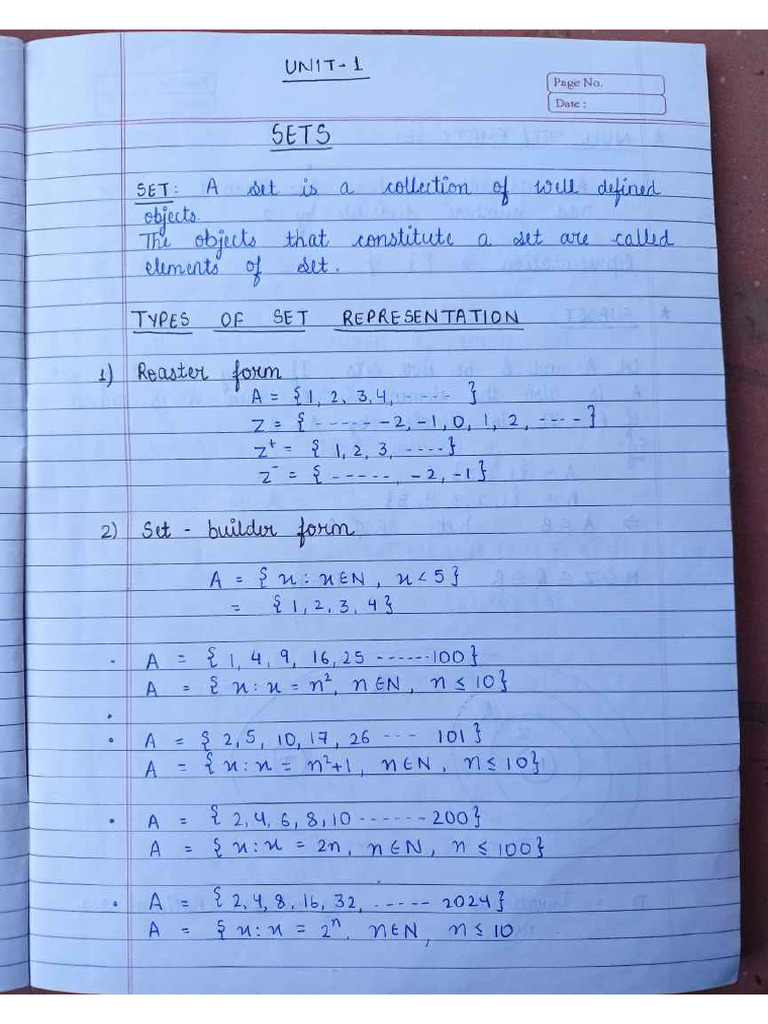 UNIT-1
Page No.
Date :
SETS
SET: A set is a collection of well defined
objects.
The objects that constitute a set are called
elements of set.
TYPES OF SET REPRESENTATION
1) Roaster form
A = {1, 2, 3,4, ..... }
Z = {------ -2, -1, 0, 1, 2, -----}
Z⁺ = { 1, 2, 3, .....}
Z⁻ = {------, -2, -1}
2) Set - builder form
A = { x : x ∈ N , x < 5 }
= { 1, 2, 3, 4 }
- A = { 1, 4, 9, 16, 25 ------100}
A = { x : x = n², n ∈ N, n ≤ 10}
•
• A = { 2, 5, 10, 17, 26 --- 101 }
A = { x : x = n²+1, n ∈ N, n ≤ 10}
• A = { 2, 4, 6, 8, 10 ------- 200}
A = { x : x = 2n, n ∈ N, n ≤ 100}
• A = { 2, 4, 8, 16, 32, ----- 2024}
A = { x : x = 2ⁿ, n ∈ N, n ≤ 10